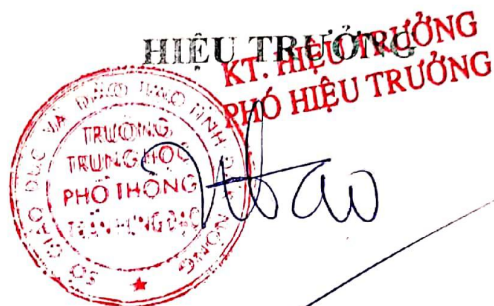 HIỆU TRƯỞNG
KT. HIỆU TRƯỞNG
PHÓ HIỆU TRƯỞNG
SỞ GIÁO DỤC VÀ ĐÀO TẠO TỈNH ĐẮK NÔNG
TRƯỜNG
TRUNG HỌC
PHỔ THÔNG
TRẦN HƯNG ĐẠO